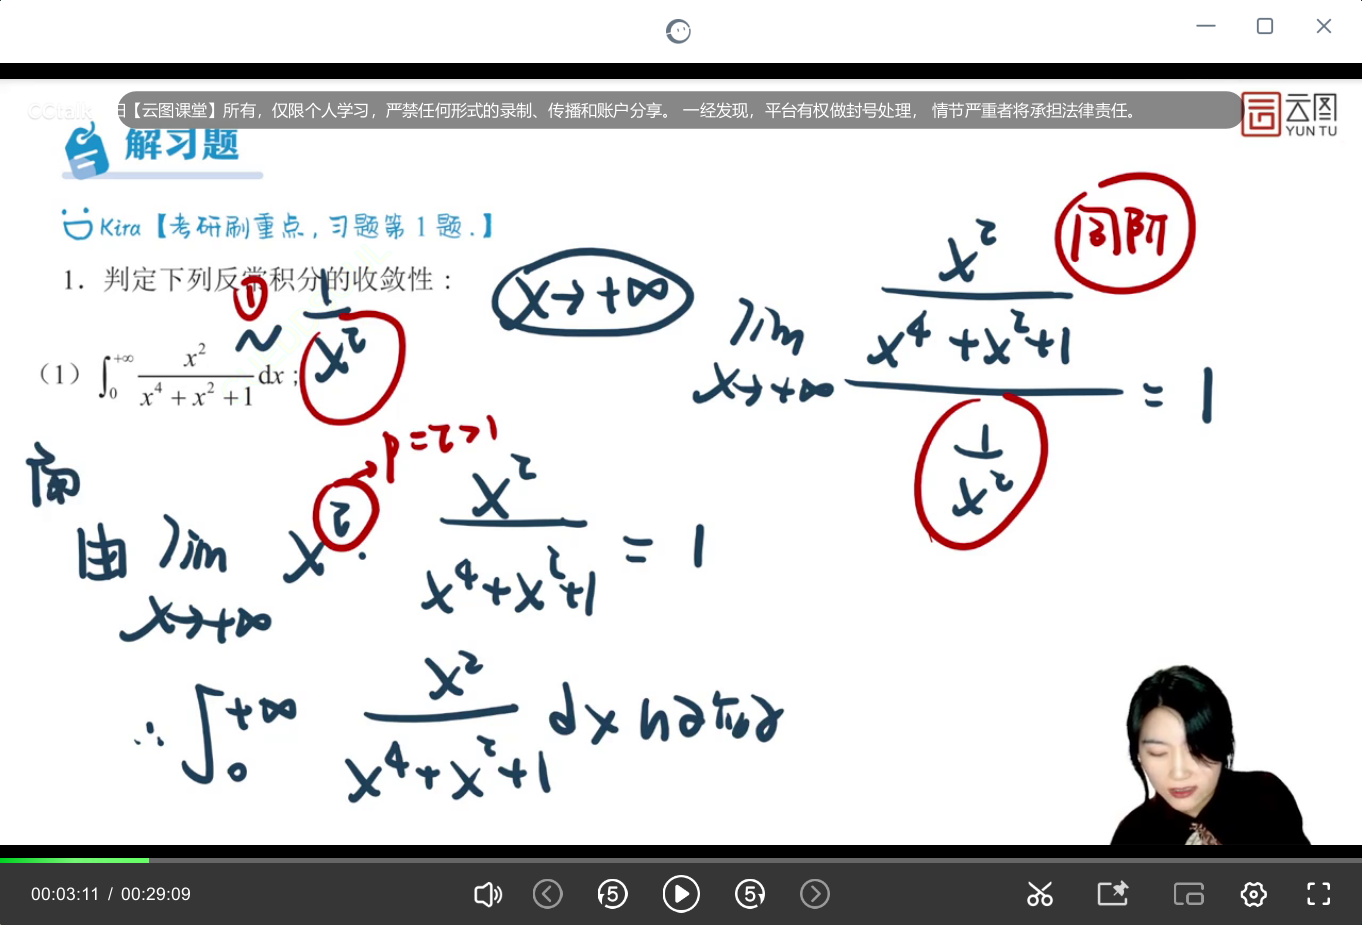 CCtalk
归【云图课堂】所有，仅限个人学习，严禁任何形式的录制、传播和账户分享。 一经发现，平台有权做封号处理， 情节严重者将承担法律责任。
云图
YUN TU
解习题
Kira【考研刷重点，习题第1题.】
1. 判定下列反常积分的收敛性：
(1) ∫₀^{+∞} x²/(x⁴+x²+1) dx;
① ~ 1/x²
x→+∞
lim_{x→+∞} (x²/(x⁴+x²+1))/(1/x²) = 1
同阶
p=2>1
由 lim_{x→+∞} x² · x²/(x⁴+x²+1) = 1
∴ ∫₀^{+∞} x²/(x⁴+x²+1) dx
00:03:11 / 00:29:09
5
5